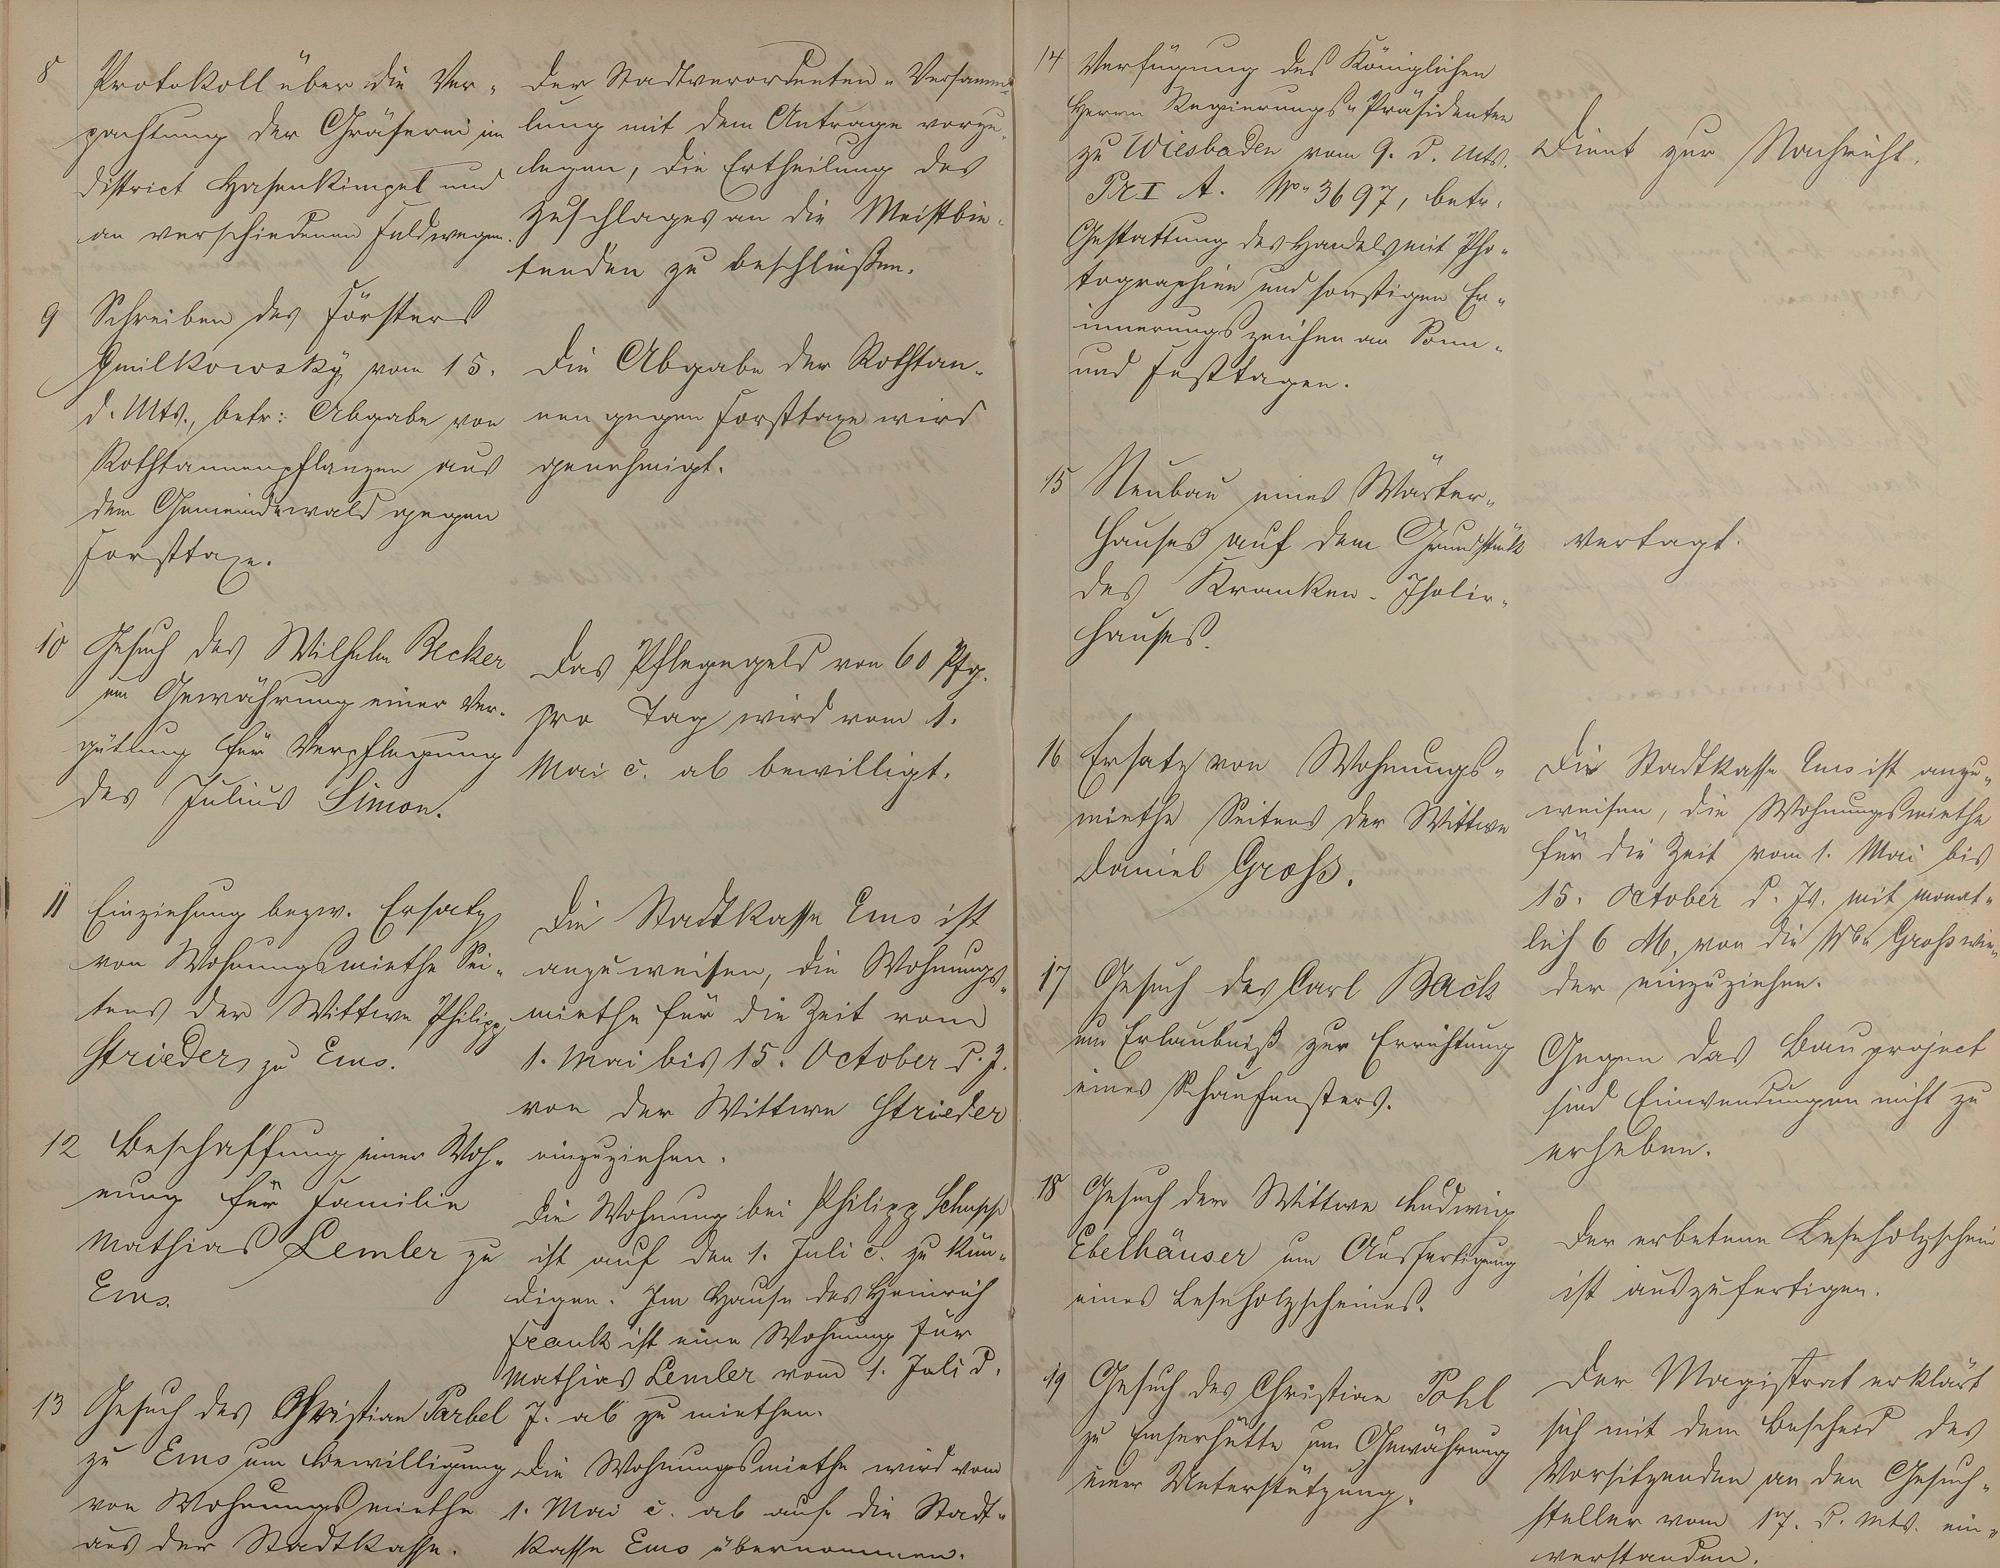 8
Protokoll über die Ver-
pachtung der Gräserei im
District Hasenkimpel und
an verschiedenen Feldwegen.
Der Stadtverordneten-Versamm-
lung mit dem Antrage vorzu-
legen, die Ertheilung des
Zuschlages an die Meistbie-
tenden zu beschließen.
9
Schreiben des Försters
vom 15.
d. Mts., betr: Abgabe von
Rothtannenpflanzen aus
dem Gemeindewald gegen
Forsttaxe.
Die Abgabe der Rothtan-
nen gegen Forsttaxe wird
genehmigt.
10
Gesuch des Wilhelm Becker
um Gewährung einer Ver-
gütung für Verpflegung
des Julius Simon.
Das Pflegegeld von 60 Pfg.
pro Tag wird vom 1.
Mai c. ab bewilligt.
11
Einziehung bezw. Ersatz
von Wohnungsmiethe Sei-
tens der Wittwe Philipp
Strieder zu Ems.
Die Stadtkasse Ems ist
anzuweisen, die Wohnungs-
miethe für die Zeit vom
1. Mai bis 15. October d. J.
von der Wittwe Strieder
einzuziehen.
12
Beschaffung einer Woh-
nung für Familie
Mathias Lemler zu
Ems.
Die Wohnung bei Philipp Schupp
ist auf den 1. Juli c. zu kün-
digen. Im Hause des Heinrich
Frank ist eine Wohnung für
Mathias Lemler vom 1. Juli d.
J. ab zu miethen.
13
Gesuch des Christian Parbel
zu Ems um Bewilligung
von Wohnungsmiethe
aus der Stadtkasse.
Die Wohnungsmiethe wird vom
1. Mai c. ab auf die Stadt-
kasse Ems übernommen.
14
Verfügung des Königlichen
Herrn Regierungs-Präsidenten
zu Wiesbaden vom 9. d. Mts.
Pr I A. No 3697, betr.
Gestattung des Handels mit Pho-
tographien und sonstigen Er-
innerungszeichen an Sonn-
und Festtagen.
Dient zur Nachricht.
15
Neubau eines Wärter-
hauses auf dem Grundstück
des Kranken-Isolir-
hauses.
Vertagt.
16
Ersatz von Wohnungs-
miethe Seitens der Wittwe
Daniel Groß.
Die Stadtkasse Ems ist anzu-
weisen, die Wohnungsmiethe
für die Zeit vom 1. Mai bis
15. October d. Js. mit monat-
lich 6 M, von die Wwe Groß wie-
der einzuziehen.
17
Gesuch des Carl Back
um Erlaubniß zur Errichtung
eines Schaufensters.
Gegen das Bauproject
sind Einwendungen nicht zu
erheben.
18
Gesuch der Wittwe Ludwig
Ebelhäuser um Ausfertigung
eines Leseholzscheines.
Der erbetene Leseholzschein
ist auszufertigen.
19
Gesuch des Christian Pohl
zu Emserhütte um Gewährung
einer Unterstützung.
Der Magistrat erklärt
sich mit dem Bescheid des
Vorsitzenden an den Gesuch-
steller vom 17. d. Mts. ein-
verstanden.